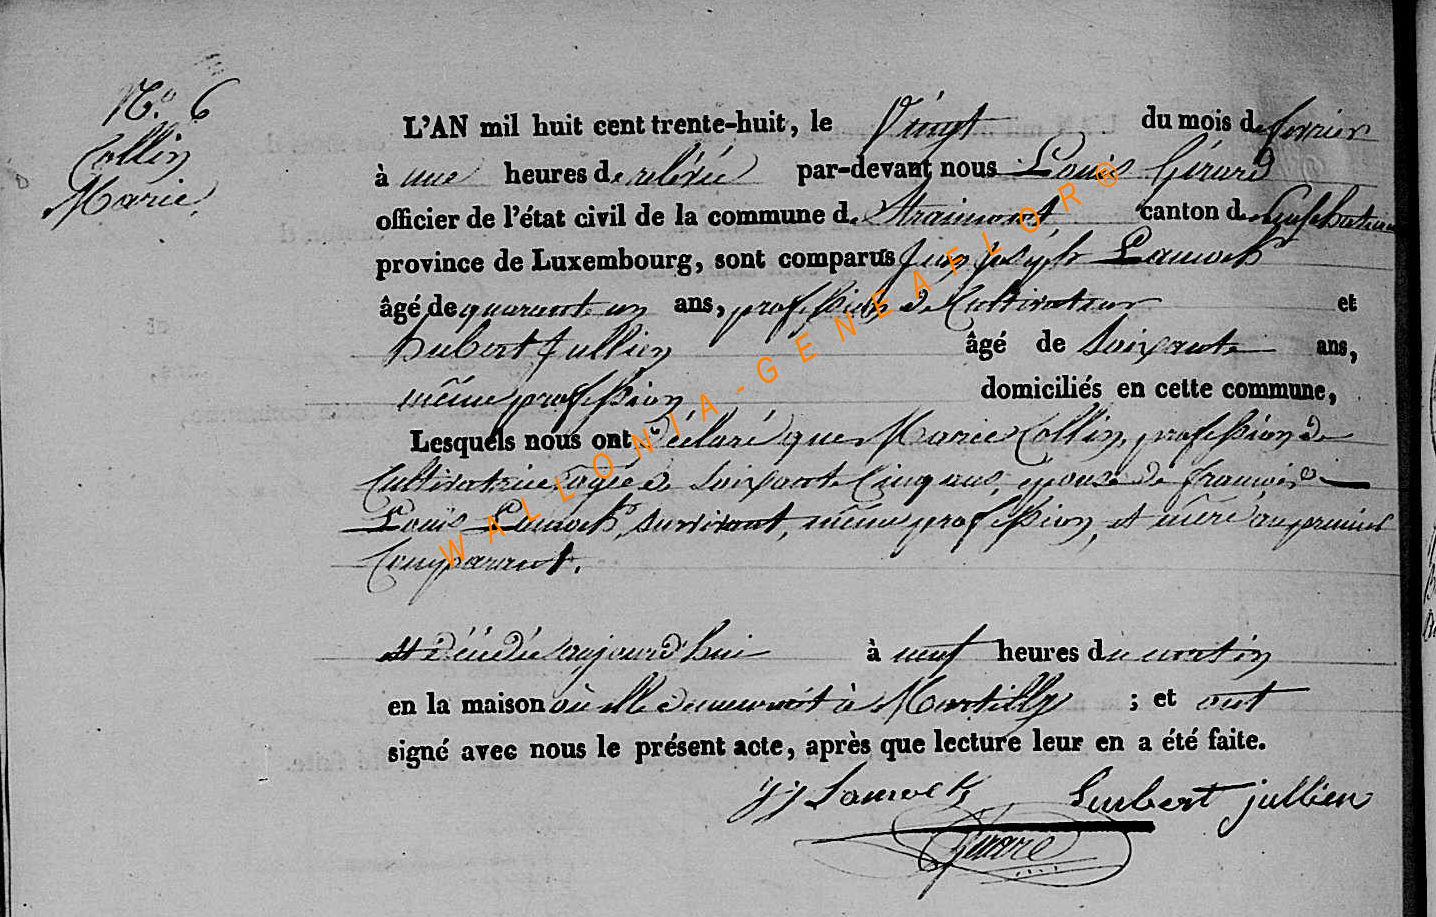 N.º 6
Collin
Marie.
L'AN mil huit cent trente-huit, le Vingt du mois de fevrier
à une heures de relévée par-devant nous Louis Gérard
officier de l'état civil de la commune de Straimont, canton de Neufchateau
province de Luxembourg, sont comparus Jean joséph Lamock
âgé de quarante un ans, profession de Cultivateur et
hubert Jullien âgé de Soixante ans,
même profession domiciliés en cette commune,
Lesquels nous ont déclaré que Marie Collin, profession de
Cultivatrice agée de Soixante Cinq ans, épouse de françois
Louis Lamock, survivant, même profession, et mère au premier
Comparant.
est décédée aujourd'hui à neuf heures du matin
en la maison où elle demeurait à Martilly ; et ont
signé avec nous le présent acte, après que lecture leur en a été faite.
jj Lamock hubert jullien
Girard
WALLONIA-GENEAFLOR®